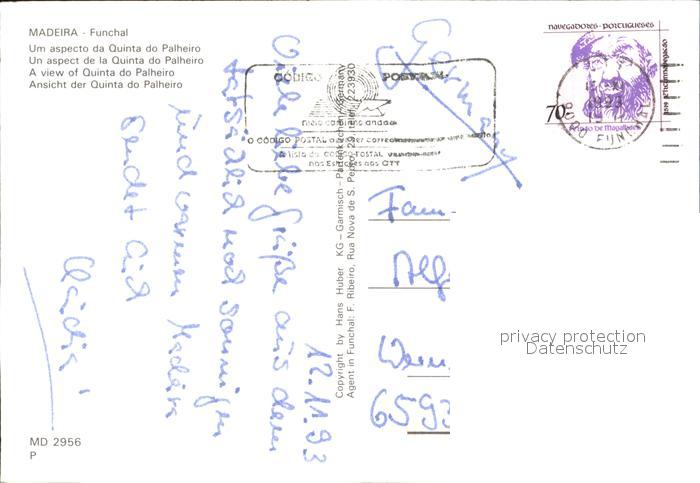 MADEIRA - Funchal
Um aspecto da Quinta do Palheiro
Un aspect de la Quinta do Palheiro
A view of Quinta do Palheiro
Ansicht der Quinta do Palheiro
CÓDIGO POSTAL
O CÓDIGO POSTAL
nas Estações dos CTT
NAVEGADORES · PORTUGUESES
70
Fernão de Magalhães
FUNCHAL
Germany
12.11.93
Viele liebe Grüße aus dem
tatsächlich noch sonnigen
und warmen Madeira
sendet Euch
Claudia
Copyright by Hans Huber KG - Garmisch-Partenkirchen/Germany
Agent in Funchal: F. Ribeiro, Rua Nova de S. Pedro, 29, telef. 223930
Fam
6593
privacy protection
Datenschutz
MD 2956
P